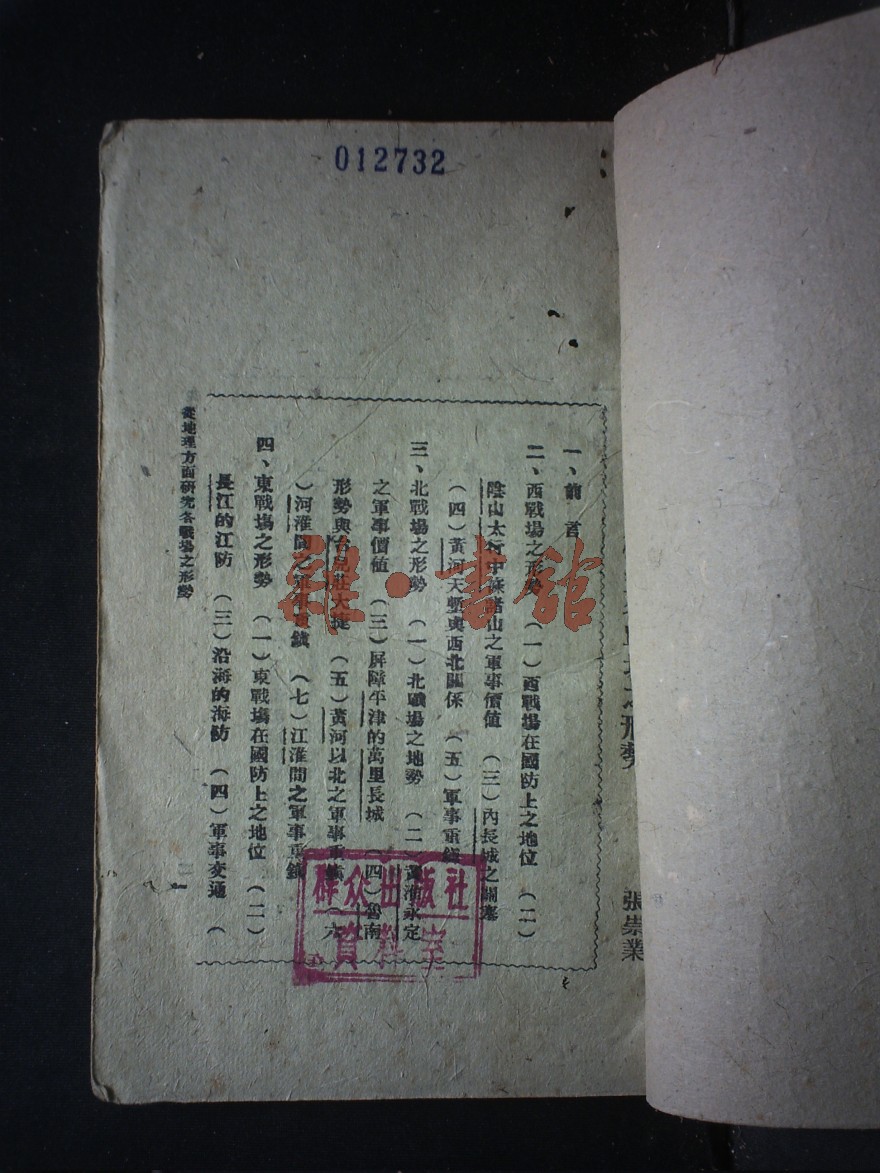 012732
之形勢
張崇業
一、前言
二、西戰場之形勢 (一)西戰場在國防上之地位 (二)
陰山太行中條諸山之軍事價值 (三)內長城之關塞
(四)黃河天塹與西北關係 (五)軍事重鎮
三、北戰場之形勢 (一)北戰場之地勢 (二)黃淮永定
之軍事價值 (三)屏障平津的萬里長城 (四)魯南
形勢與台兒莊大捷 (五)黃河以北之軍事重鎮 (六
)河淮間之軍事重鎮 (七)江淮間之軍事重鎮
四、東戰場之形勢 (一)東戰場在國防上之地位 (二)
長江的江防 (三)沿海的海防 (四)軍事交通 (
從地理方面研究各戰場之形勢
一
群众出版社
資料室
雜·書館